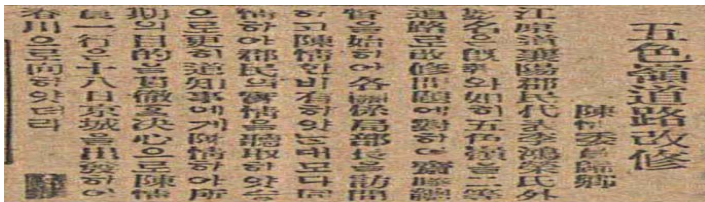 五色嶺道路改修
陳情委員歸鄕
江原道襄陽郡民代表李鴻來氏外
數名은旣報와如히五色嶺을二等
道路로改修問題에對하야齋藤總
督을始하야各關係局部長을訪問
하고陳情한바有하얏는대모다同
情하야郡民의實情을聽取하얏슴
으로更히道知事에게陳情하야所
期의目的을貫徹決心으로陳情
員一行은十八日京城을出發하야
春川으로向하얏더라